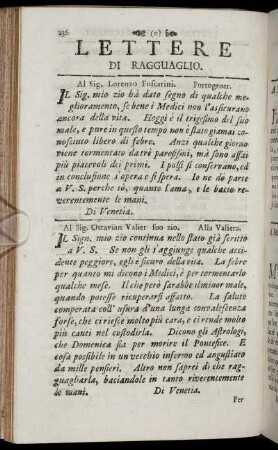 236 (o)
LETTERE
DI RAGGUAGLIO.
Al Sig. Lorenzo Foscarini. Portogroer.
IL Sig. mio zio hà dato segno di qualche me-
glioramento, se bene i Medici non l'assicurano
ancora della vita. Hoggi è il trigesimo del suo
male, e pure in questo tempo non è stato giamai co-
nosciuto libero di febre. Anzi qualche giorno
viene tormentato da trè parosismi, mà sono assai
più piacevoli dei primi. I polsi si conservano, ed
in conclusione s'opera e si spera. Io ne dò parte
a V. S. perche iò, quanto l'ama, e le bacio re-
verentemente le mani.
Di Venetia.
Al Sig. Ottavian Valier suo zio. Alla Valiera.
IL Sign. mio zio continua nello stato già scritto
à V. S. Se non gli s'aggiunge qualche acci-
dente peggiore, egli è sicuro della vita. La febre
per quanto mi dicono i Medici, è per tormentarlo
qualche mese. Il che però sarebbe il minor male,
quando potesse ricuperarsi affatto. La salute
comperata coll' usura d'una lunga convalescenza
forse, che ci riesce molto più cara, e ci rende molto
più cauti nel custodirla. Dicono gli Astrologi,
che Domenica sia per morire il Pontefice. E
cosa possibile in un vecchio infermo ed angustiato
da mille pensieri. Altro non saprei di che rag-
guagliarla, baciandole in tanto riverentemente
le mani. Di Venetia.
Per